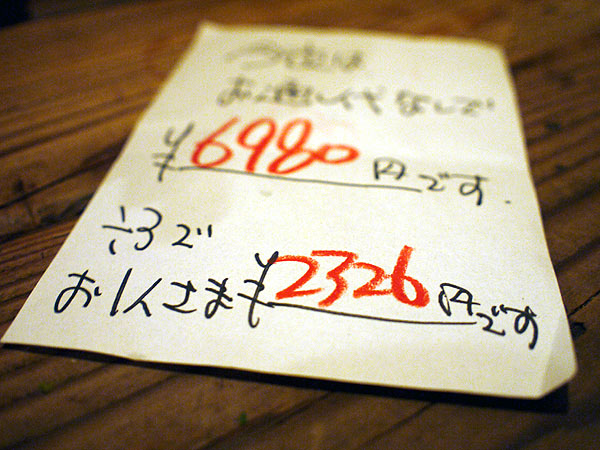 お通し代なしで
¥6980円です.
÷3で
お1人さま¥2326円です